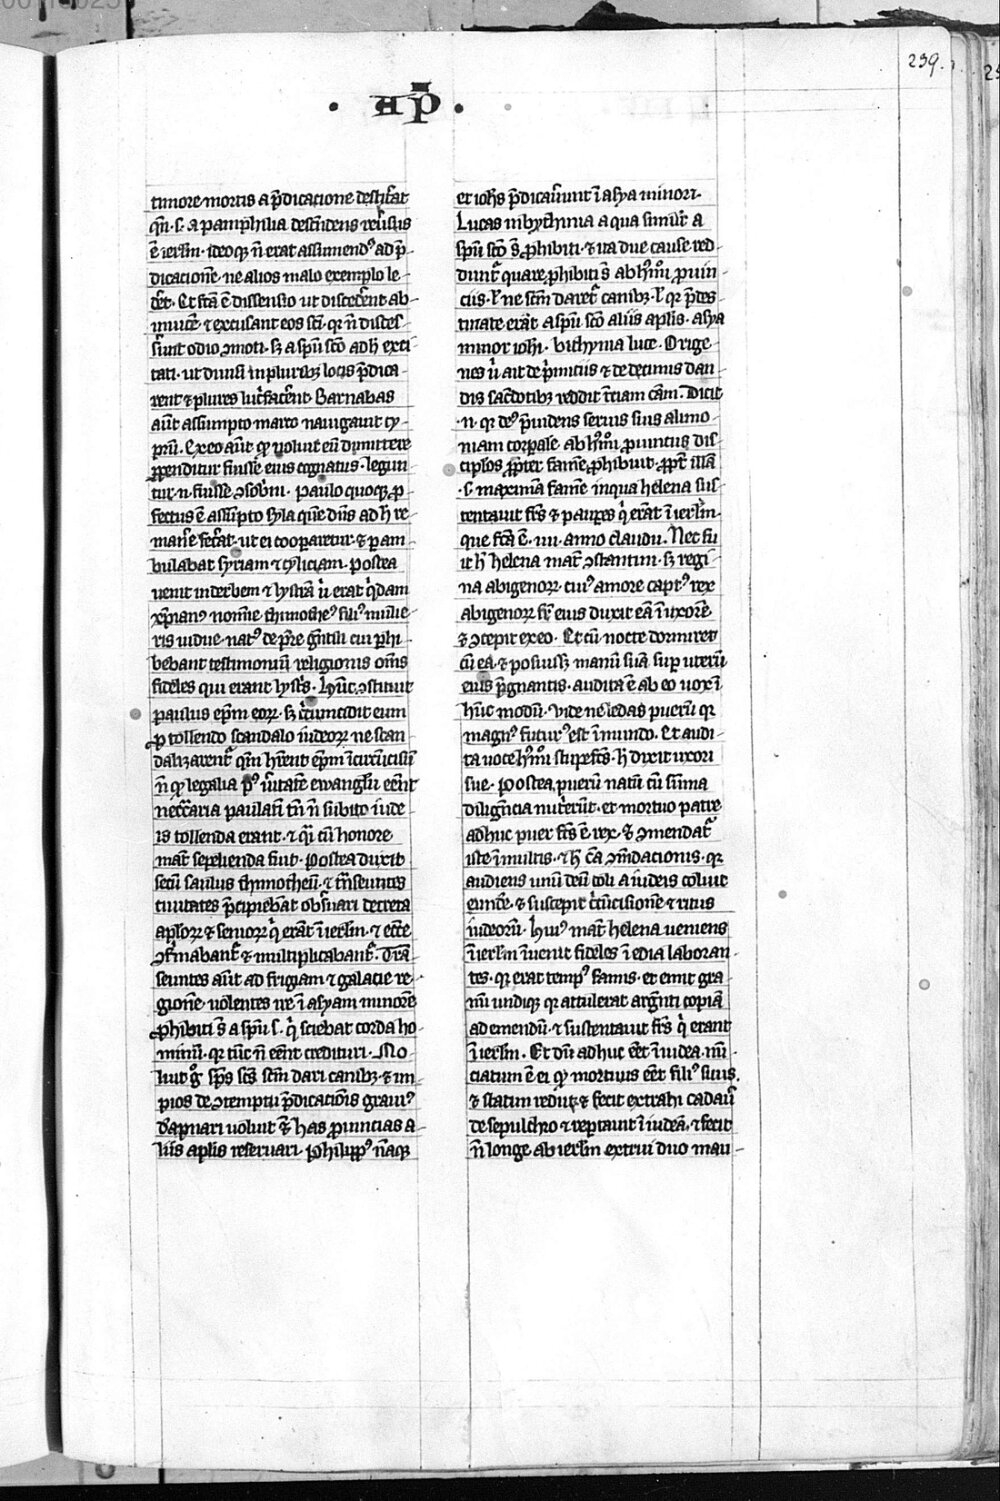 239.
· AP̄ ·
timore mortis a p̄dicatione destit̾at
qn̄ .s. a pamphilia descēdens reūsus
ē ierlm̄ · ideoqꝫ n̄ erat assumendꝰ ad p̄
dicationē · ne alios malo exemplo le
deret · Et fc̄a ē dissensio ut discederēt ab
inuicē · ⁊ excusant eos sc̄i · qꝛ n̄ disces
serūt odio ꝯmoti · sꝫ a spū sc̄o ad h̄ exci
tati · ut diuisi in pluribꝫ locis p̄dica
rent ⁊ plures luc̾faceren̄t · Barnabas
aūt assumpto marco nauigauit cy
prū · Ex eo aūt qꝫ uoluit eū dimittere
ꝑpenditur fuisse eius cognatus · legun
tur .n. fuisse ꝯsob̾ni · paulo quoqꝫ ꝓ
fectus ē assūpto syla quē dn̄s ad h̄ re
man̾e fec̾at · ut ei cooꝑaretur · ⁊ ꝑam
bulabat syriam ⁊ cyliciam · postea
uenit in derbem ⁊ lystrā ū erat q̇dam
xp̄ianꝰ nomīe thimotheꝰ filiꝰ mulie
ris uidue · natꝰ de pr̄e gn̄tili cui ꝑhi
bebant testimoniū religionis om̄s
fideles qui erant lystris · Hūc ꝯstituit
paulus ep̄m eoꝝ · sꝫ c̾cumcidit eum
ꝓ tollendo scandalo iudeoꝝ ne scan
dalizarent̾ qn̄ hr̄ent ep̄m īcircūcisū
n̄ qꝫ legalia pꝰ ūitatē ewangl̄ii eēnt
neccāria paulatī tn̄ n̄ subito iude
is tollenda erant · ⁊ q̾i cū honore
mat̾ sepelienda fuit · postea duxit
secū saulus thimotheū · ⁊ tn̄seuntes
ciuitates p̄cipiebāt obs̾uari decreta
aplōꝝ ⁊ senioꝝ q̇ erāt ī ierlm̄ · ⁊ ecc̄e
ꝯfirmabant̾ ⁊ multiplicabant̾ · Trā
seuntes aūt ad frigiam ⁊ galacie re
gionē · uolentes ire ī asyam minorē
ꝓhibiti s̄ a spū .s. q̇ sciebat corda ho
minū · qꝛ tūc n̄ eēnt credituri · No
luit gͦ sp̄s sc̄s sc̄m dari canibꝫ · ⁊ im
pios de ꝯtemptu p̄dicatiōis grauiꝰ
dāpnari uoluit ⁊ has ꝓuincias a
liis aplīs reseruari · philippꝰ nāqꝫ
et ioh̄s p̄dicauerunt ī asya minori ·
Lucas in bythinia a qua similit̾ a
spū sc̄o s̄ ꝓhibiti · ⁊ ita due cause red
dunt̾ quare ꝓhibiti s̄ ab hīīs ꝓuin
ciis · l̄ ne sc̄m daret̾ canibꝫ · l̄ qꝛ p̄des
tinate erāt a spū sc̄o aliis aplīs · asya
minor iohī · bithynia luce · Orige
nes ū ait de p̄miciis ⁊ de decimis dan
dis sac̾dotibꝫ reddit t̾ciam cām · Dicit
.n. qꝛ deꝰ p̄uidens seruis suis alimo
niam corꝑale ab hīīs ꝓuinciis dis
ciplōs ꝓpter famē ꝓhibuit · ꝓpt̾ illā
.s. maximā famē in qua helena sus
tentauit fr̄s ⁊ pauꝑes q̇ erāt ī ierlm̄ ·
que fc̄a ē .iiii. anno claudii · Nec fu
it h̄ helena mat̾ ꝯstantini · sꝫ regi
na abigenoꝝ · cuiꝰ amore captꝰ rex
abigenoꝝ fr̄ eius duxit eā ī uxorē
⁊ ꝯcepit ex eo · Et cū nocte dormiret
cū ea · ⁊ posuissꝫ manū suā suꝑ uterū
eius p̄gnantis · audita ē ab eo uox ī
hūc modū · Vide ne ledas puerū qꝛ
magnꝰ futurꝰ est ī mundo · Et audi
ta uoce hīīs stupefc̄s · h̄ dixit uxori
sue · postea puerū natū cū sūma
diligēcia nut̾erūt · et mortuo patre
adhuc puer fc̄s ē rex · ⁊ ꝯmendat̾
iste ī multis · ⁊ h̄ cā ꝯmdacionis · qꝛ
audiens unū deū coli a iudeis coluit
eundē · ⁊ suscepit c̾cūcisionē ⁊ ritus
iudeorū · Huiꝰ mat̾ helena ueniens
ī ierlm̄ īuenit fideles ī edia laboran
tes · qꝛ erat tempꝰ famis · et emit gra
nū undiqꝫ qꝛ attulerat argēti copiā
ad emendū · ⁊ sustentauit fr̄s q̇ erant
ī ierlm̄ · Et dū adhuc eēt ī iudea · nū
ciatum ē ei qꝫ mortuus eēt filiꝰ suus ·
⁊ statim rediit ⁊ fecit extrahi cadau̾
de sepulchro ⁊ reportauit ī iudeā · ⁊ fecit
n̄ longe ab ierlm̄ extrui duo mau